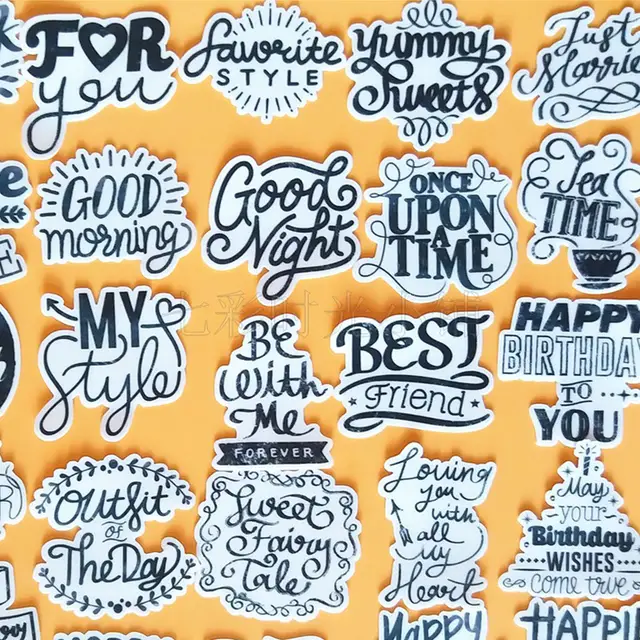 FOR
you
favorite
STYLE
Yummy
Sweets
Just
Married
GOOD
morning
Good
Night
ONCE
UPON
A
TIME
Tea
TIME
MY
Style
BE
With
Me
FOREVER
BEST
Friend
HAPPY
BIRTHDAY
TO
YOU
Outfit
of
The Day
Sweet
Fairy
Tale
Loving
you
with
all
my
Heart
May
your
Birthday
WISHES
come true
Happy
HAPPY
七彩时光小铺